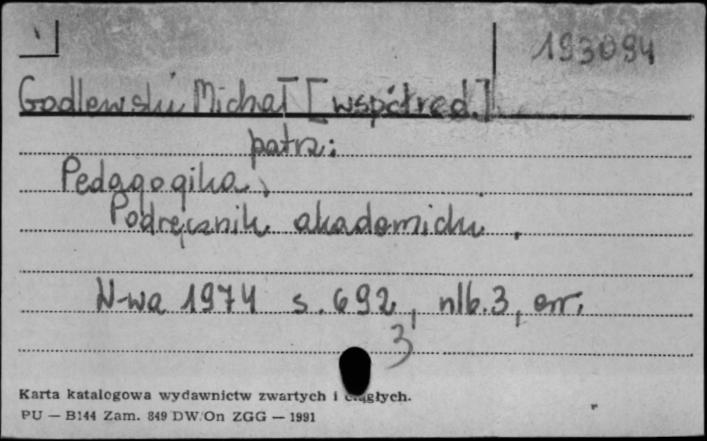 193094
Godlewski Michał [współred.]
patrz:
Pedagogika.
Podręcznik akademicki.
W-wa 1974 s. 692, nlb. 3, err.
3
Karta katalogowa wydawnictw zwartych i ciągłych.
PU — B144 Zam. 849 DW/On ZGG — 1991